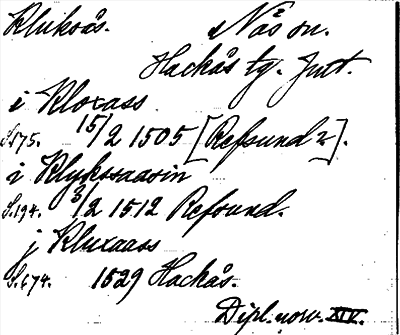 Kluksås. Näs sn.
Hackås tg. Jtl.
i Kloxass
S.175. 15/2 1505 [Refsund 2].
i Klykssaasin
S.194. 3/2 1512 Refsund.
j Kluxaass
S.674. 1529 Hackås.
Dipl. norv. XIV.